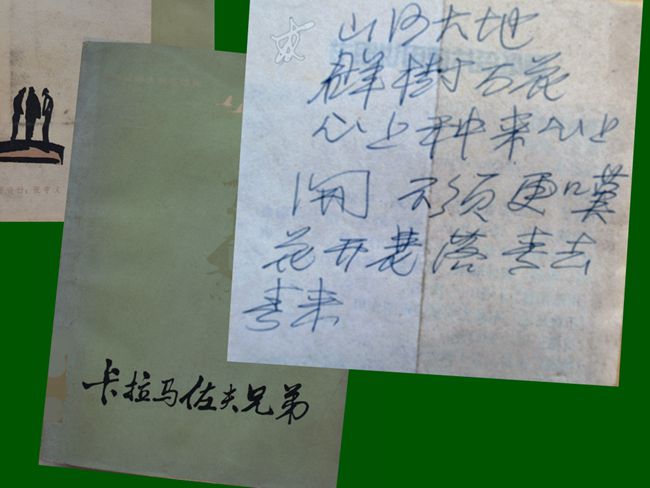 山河大地
群樹百花
心上种来心上
開 不须更嘆
花开花落春去
春来
卡拉马佐夫兄弟